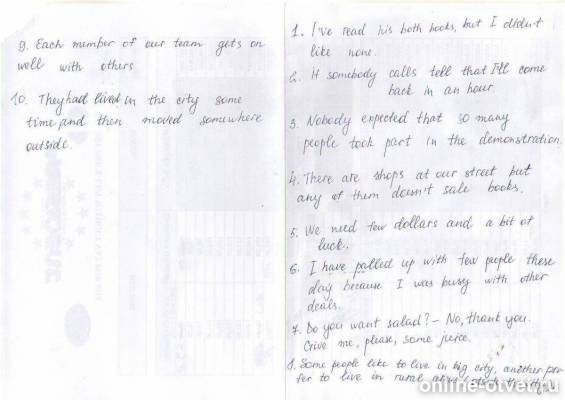 9. Each member of our team gets on
well with others
10. They had lived in the city some
time and then moved somewhere
outside.
1. I've read his both books, but I didn't
like none.
2. If somebody calls tell that I'll come
back in an hour.
3. Nobody expected that so many
people took part in the demonstration.
4. There are shops at our street but
any of them doesn't sale books.
5. We need few dollars and a bit of
luck.
6. I have palled up with few people these
day because I was busy with other
deals.
7. Do you want salad? – No, thank you.
Give me, please, some juice.
8. Some people like to live in big city, another pre-
fer to live in rural
online-otvet.ru